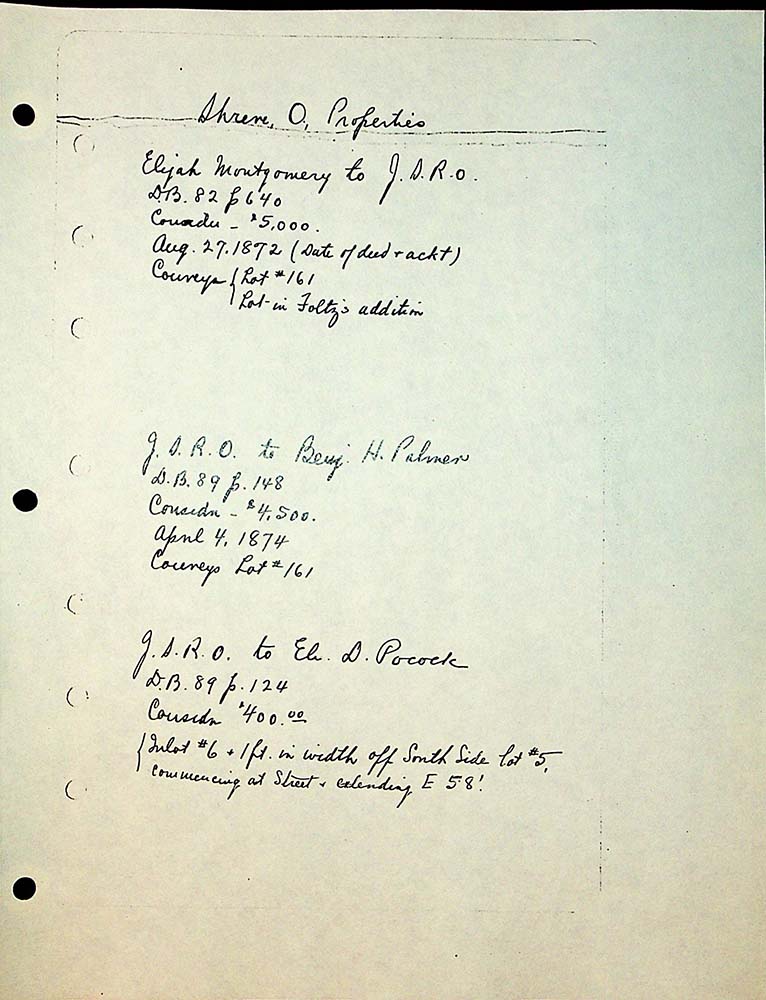 Shreve, O, Properties
Elijah Montgomery to J.D.R.O.
D.B. 82 p 640
Considn - $5,000.
Aug. 27, 1872 (Date of deed + ackt)
Conveys { Lot #161
Lot in Foltz's addition
J.D.R.O. to Benj. H. Palmer
D.B. 89 p. 148
Considn - $4,500.
April 4, 1874
Conveys Lot #161
J.D.R.O. to Eli D. Pocock
D.B. 89 p. 124
Considn $400.00
{ Inlot #6 + 1 ft. in width off South Side lot #5,
commencing at Street & extending E 58'.